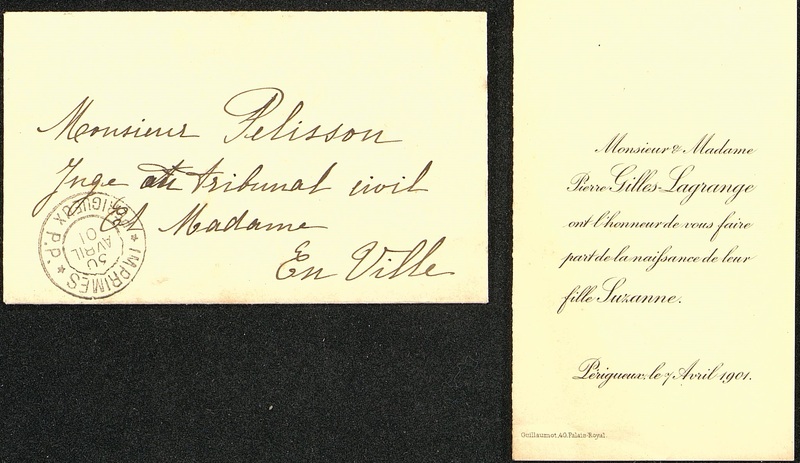 Monsieur Pelisson
Juge au tribunal civil
Et Madame
En Ville
PERIGUEUX P.P. * IMPRIMÉS *
30
AVRIL
01
Monsieur & Madame
Pierre Gilles-Lagrange
ont l'honneur de vous faire
part de la naissance de leur
fille Suzanne.
Périgueux, le 7 Avril 1901.
Guillaumot, 40, Palais-Royal.